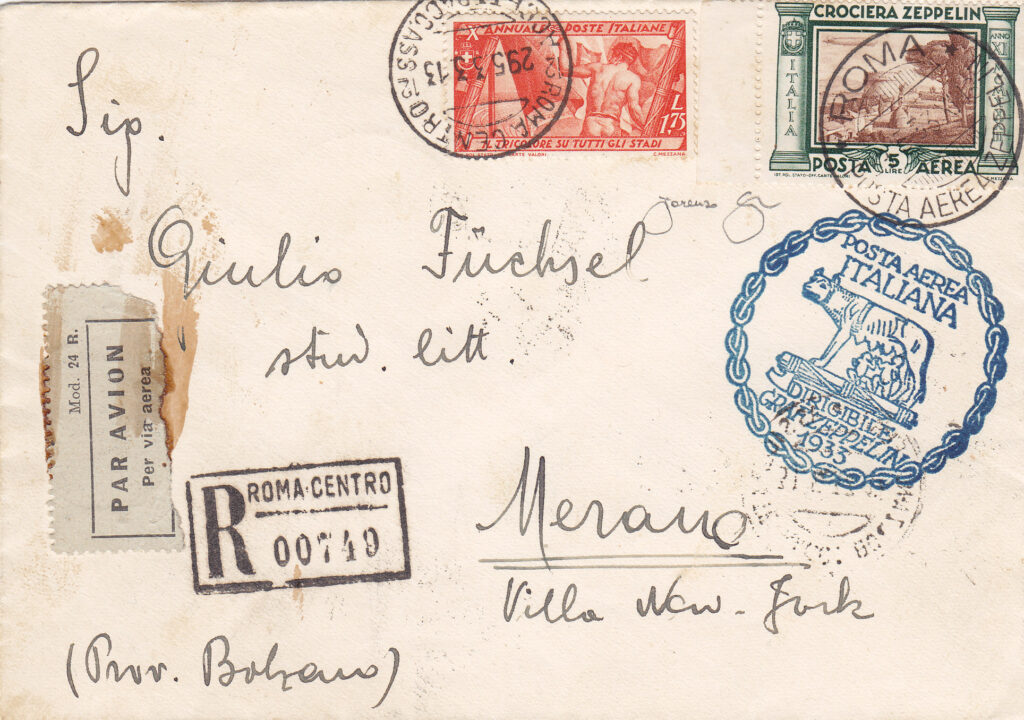 ROMA CENTRO
29 5 33 13
X ANNUALE
POSTE ITALIANE
L
1,75
IL TRICOLORE SU TUTTI GLI STADI
C. MEZZANA
CROCIERA ZEPPELIN
ITALIA
ANNO XI
POSTA 5 AEREA
LIRE
IST. POL. STATO-OFF. CARTE VALORI
ROMA
POSTA AEREA
Sig.
Giulio Füchsel
stud litt.
POSTA AEREA
ITALIANA
DIRIGIBILE
GRAF ZEPPELIN
1933
Mod. 24 R.
PAR AVION
Per via aerea
R
ROMA·CENTRO
00749
Merano
Villa New-York
(Prov. Bolzano)